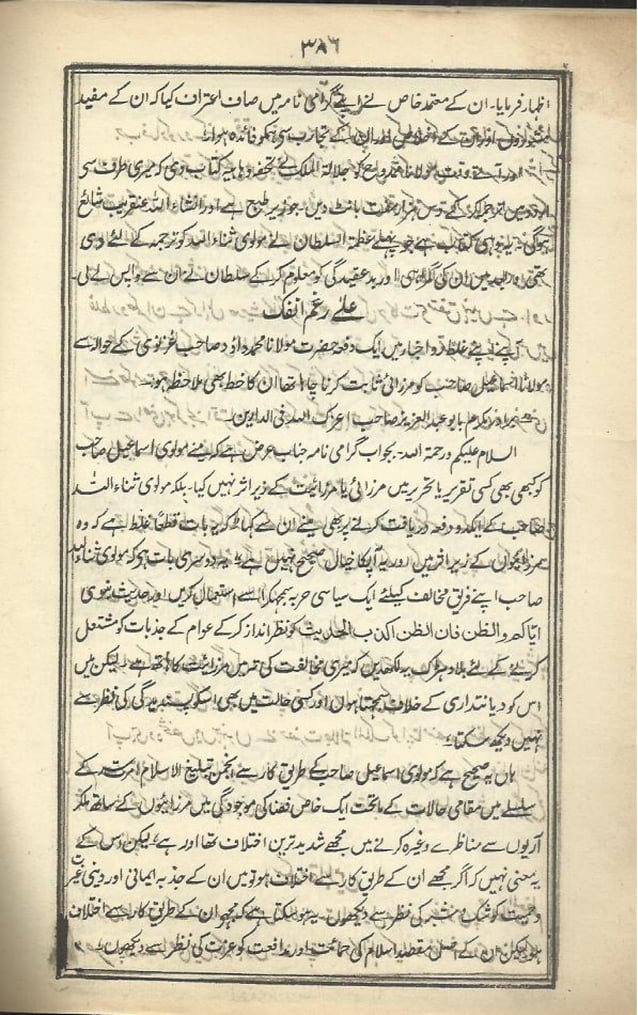 ۳۸۶
اظہار فرمایا۔ ان کے معتمد خاص نے اپنے گرامی نامہ میں صاف اعتراف کیا کہ ان کے مفید
مشوروں اور ان کے تجارب سے ہمکو فائدہ ہوا۔
اور آتے وقت مولانا ممدوح کو جلالۃ الملک نے تحفۃً یہ کتاب دی کہ میری طرف سی
اردو میں ترجمہ کر کے دس ہزار مفت بانٹ دیں۔ جو زیر طبع ہے اور انشاء اللہ عنقریب شائع
ہوگی۔ یہ وہی کتاب ہے جو پہلے عظمۃ السلطان نے مولوی ثناء اللہ کو ترجمہ کے لئے دی
تھی اور بعد میں ان کی گمراہی اور بدعقیدگی کو معلوم کر کے سلطان نے ان سے واپس لے لی۔
علےٰ رغم انفک
آپ نے اپنے غلط رو اخبار میں ایک دفعہ حضرت مولانا محمد داؤد صاحب غزنوی کے حوالہ سے
مولانا اسماعیل صاحب کو مرزائی ثابت کرنا چاہا تھا ان کا خط بھی ملاحظہ ہو۔
برادر مکرم بابو عبدالعزیز صاحب اعزک اللہ فی الدارین۔
السلام علیکم ورحمۃ اللہ۔ بجواب گرامی نامہ جناب عرض ہے کہ مینے مولوی اسماعیل صاحب
کو کبھی بھی کسی تقریر یا تحریر میں مرزائی یا مرزائیت کے زیر اثر نہیں کیا۔ بلکہ مولوی ثناء اللہ
صاحب کے ایک دو دفعہ دریافت کرنے پر بھی مینے ان سے کہا کہ یہ بات قطعاً غلط ہے کہ وہ
مرزائیوں کے زیر اثر ہیں اور یہ آپکا خیال صحیح نہیں ہے۔ یہ دوسری بات ہی کہ مولوی ثناء اللہ
صاحب اپنے فریق مخالف کیلئے ایک سیاسی حربہ سمجھکر اسے استعمال کریں اور حدیث نبوی
ایاکم والظن فان الظن اکذب الحدیث کو نظر انداز کر کے عوام کے جذبات کو مشتعل
کرنے کے لئے بلا دھڑک یہ لکھدیں کہ میری مخالفت کی تہ میں مرزائیت کا ہاتھ ہے۔ لیکن میں
اس کو دیانتداری کے خلاف سمجھتا ہوں اور کسی حالت میں بھی اسکو پسندیدگی کی نظر سے
نہیں دیکھ سکتا۔
ہاں یہ صحیح ہے کہ مولوی اسماعیل صاحب کے طریق کار سے انجمن تبلیغ الاسلام امرتسر کے
سلسلے میں مقامی حالات کے ماتحت ایک خاص فضا کی موجودگی میں مرزائیوں کے ساتھ ملکر
آریوں سے مناظرے وغیرہ کرنے میں مجھے شدید ترین اختلاف تھا اور ہے۔ لیکن اس کے
یہ معنی نہیں کہ اگر مجھے ان کے طریق کار سے اختلاف ہو تو میں ان کے جذبہ ایمانی اور دینی غیرت
وحمیت کو شک و شبہ کی نظر سے دیکھوں۔ یہ ہو سکتا ہے کہ مجھے ان کے طریق کار سے اختلاف
ہو لیکن ان کے اصلی مقصد اسلام کی حمائت اور مدافعت کو عزت کی نظر سے دیکھوں۔